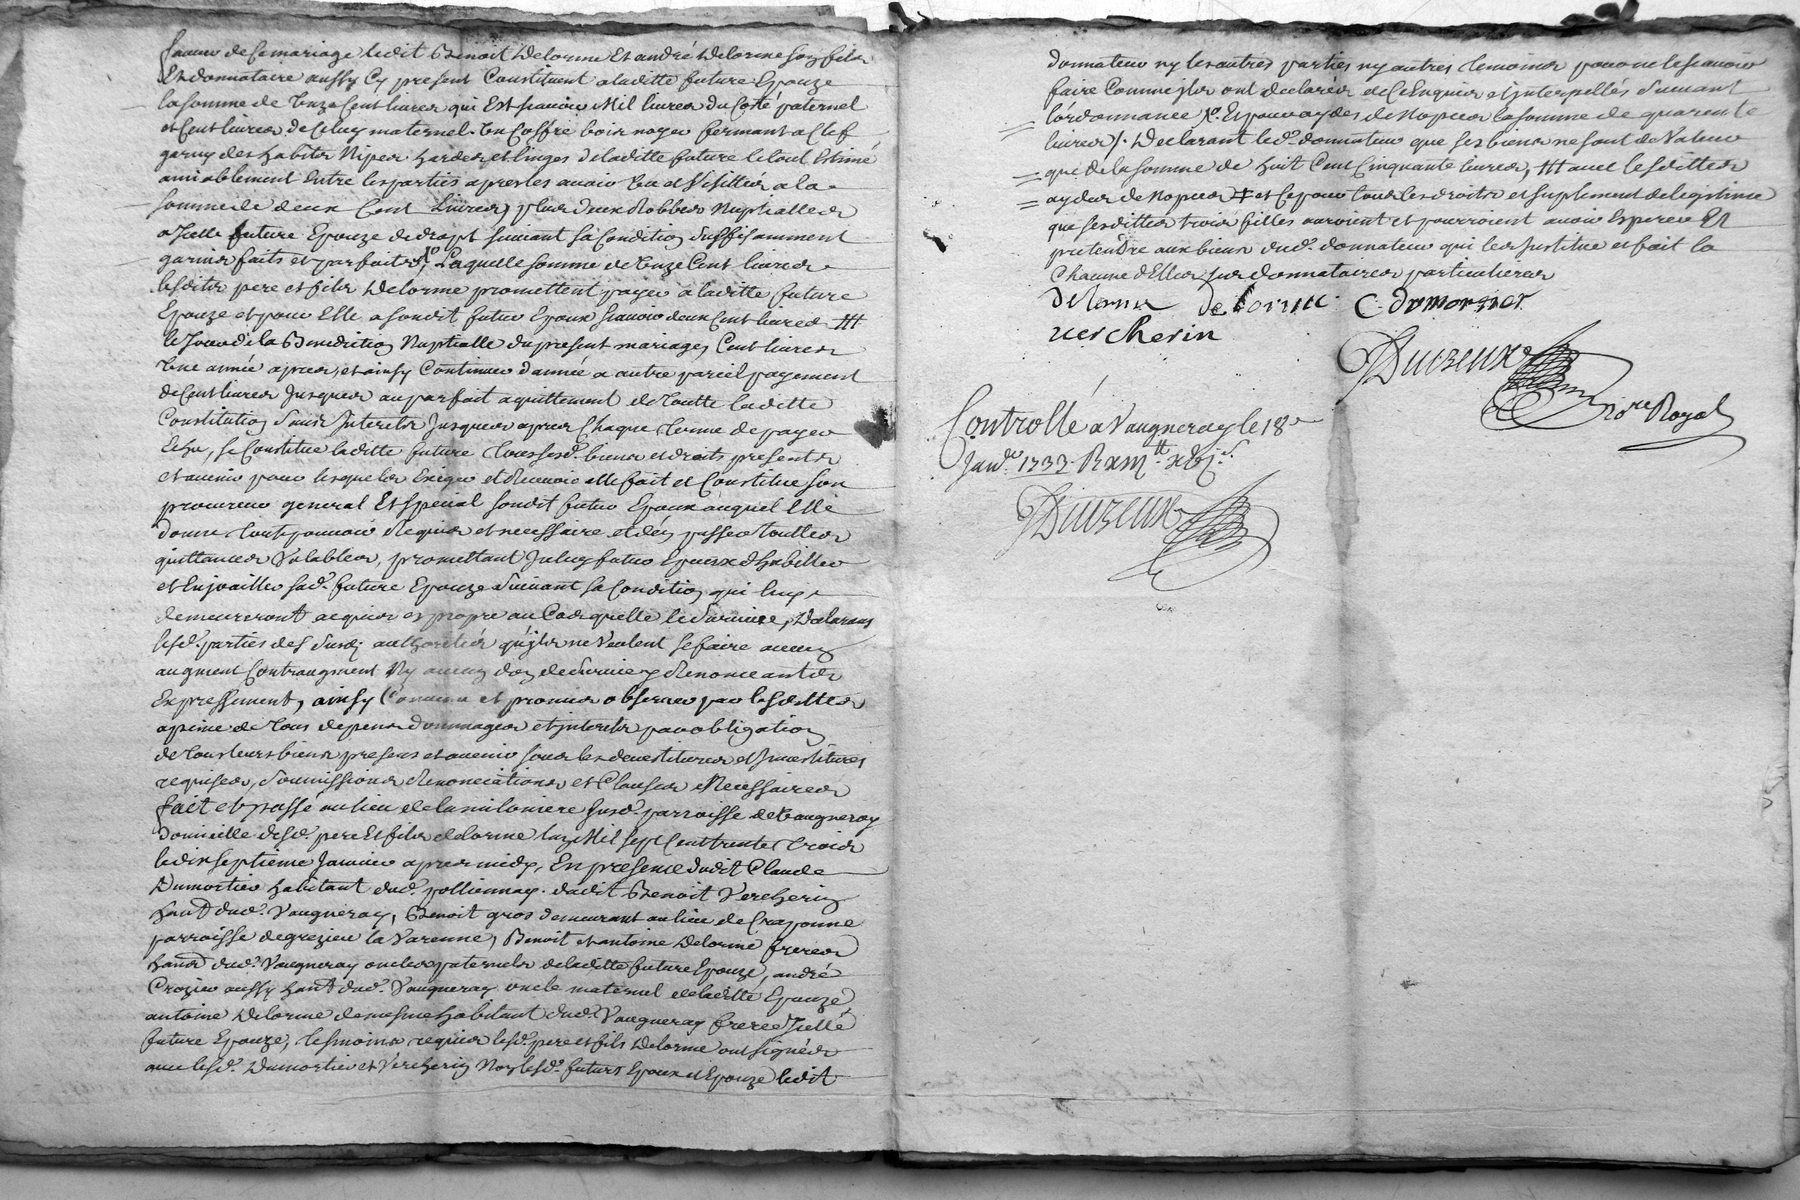 faveur de ce mariage ledit Benoit Delorme Et andré Delorme son fils
Et donnataire aussy Cy present Constituent a laditte future Epouze
la somme de Unze Cent livres qui Est scavoir Mil livres du Costé paternel
et Cent livres de Celuy maternel. Un Coffre bois noyer fermant a Clef
garny des habits Nipes hardes et linges de laditte future le tout Estimé
amiablement Entre les parties apres les avoir Vu et Visittés a la
somme de deux Cent Livres, plus deux Robbes Nuptialles
a Icelle future Epouze de drapt suivant sa Condition suffisamment
garnies faits et parfaits, Laquelle somme de Unze Cent livres
lesdits pere et fils Delorme promettent payer a laditte future
Epouze et pour Elle a sondit futur Epoux scavoir deux Cent livres #
le Jour de la Benediction Nuptialle du present mariage, Cent livres
Une année apres, et ainsy Continuer d'année a autre pareil payement
de Cent livres Jusques au parfait aquittement de toutte laditte
Constitution sans Interets Jusques apres Chaque terme de payer
Echu, se Constitue laditte future tous sesd. biens et droits presents
et avenir pour lesquels Exiger et Recevoir elle fait et Constitue son
procureur general Et special sondit futur Epoux auquel Elle
donne tout pouvoir Requis et necessaire et d'en passer touttes
quittances Valables, promettant Iceluy futur Epoux d'habiller
et Enjoailler sad. future Epouze suivant sa Condition qui luy
demeureront acquis et propre au Cas quelle le survive, Declarans
lesd. parties de susd. authorités qu'ils ne Veulent se faire aucun
augment Contraugment Ny aucun don de survie y Renonceants
Expressement, ainsy Convenu et promis observer par lesdittes
a peine de tous depens dommages et interets par obligation
de tous leurs biens presens et avenir sous les devestitures et Investitures
requises, soumissions Renonciations et Clauses Necessaires
fait et passé au lieu de la milonniere susd. parroisse de Vaugneray
Domicille desd. pere Et fils delorme lan Mil sept Cent trente trois
le dix septieme Janvier apres midy, En presence dudit Claude
Dumortier habitant dud. pollionnay. dudit Benoit Vercherin
hant dud. Vaugneray, Benoit gros demeurant au lieu de Craponne
parroisse de grezieu la Varenne, Benoit et antoine Delorme freres
hans dud. Vaugneray oncles paternels de laditte future Epouze, andré
Crozier aussy hant dud. Vaugneray oncle maternel de laditte Epouze
antoine Delorme de mesme habitant dud. Vaugneray frere d'Icelle
future Epouze, tesmoins requis lesd. pere et fils Delorme ont signés
avec lesd. Dumortier et Vercherin Non lesd. futurs Epoux et Epouze ledit
donnateur ny les autres parties ny autres temoins pour ne le scavoir
faire Comme ils ont declarés de Ce Enquis et interpellés suivant
l'ordonnance Et pour aydes de Nopces la somme de quarente
livres /. Declarant led. donnateur que ses biens ne sont de Valeur
que de la somme de huit Cent Cinquante livres, # avec lesdittes
aydes de Nopces ‡ et Ce pour tous les droits et suplement de legitime
que sesdittes trois filles auroient et pourroient avoir Esperer Et
pretendre aux biens dud. donnateur qui les Institue et fait la
Chacune d'Elles ses donnataires particulieres
delorme delorme C. dumortier
vercherin
Duizeux
Nore Royal
Controllé a Vaugneray le 18e
Janv. 1733. R
Duizeux